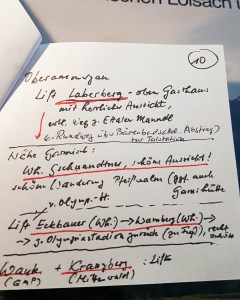 ischen Loisach u
10
Oberammergau
Lift Laberberg - oben Gasthaus
mit herrlicher Aussicht,
evtl. Weg z. Ettaler Mandl
o. Rundweg über Bärenbadfleck, Abstieg
zur Talstation
Nähe Garmisch:
Wh. Gschwandtner, schöne Aussicht!
schöne Wanderung Pfeifferalm (ggf. auch
Gamshütte
v. Olymp.-St.
Lift Eckbauer (Wh.) → Wamberg (Wh.) →
→ z. Olympiastadion zurück (zu Fuß), recht schön
Wank + Kranzberg : Lifte
(GAP) (Mittenwald)